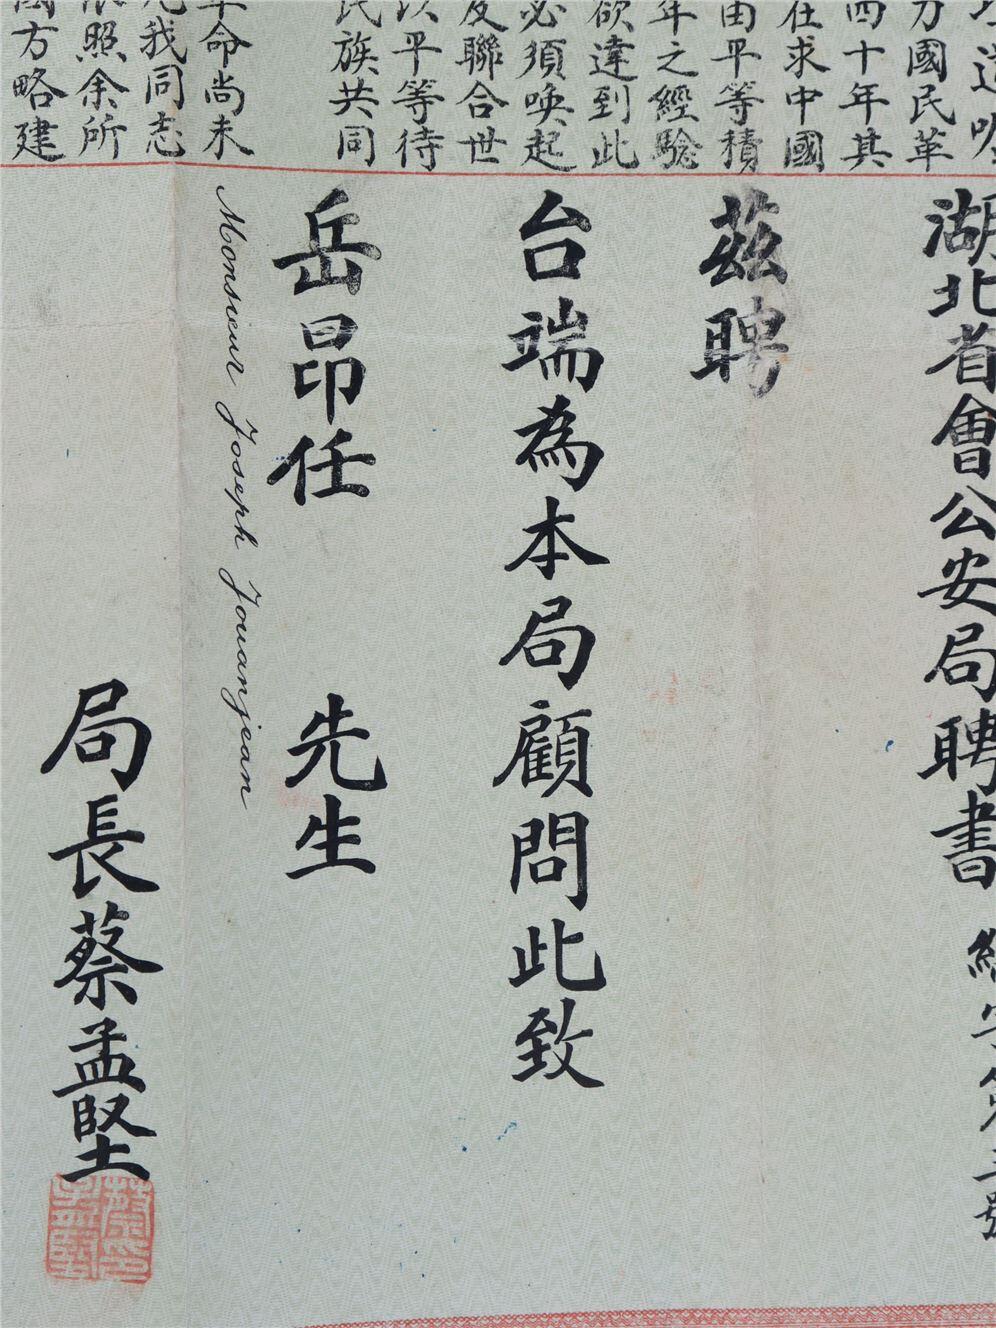 道
力國民革
四十年其
在求中國
由平等積
年之經驗
欲達到此
必須喚起
及聯合世
以平等待
民族共同
革命尚未
凡我同志
依照余所
國方略建
湖北省會公安局聘書 總字第 號
茲聘
台端為本局顧問此致
岳昂任 先生
Monsieur Joseph Jouanjean
局長蔡孟堅